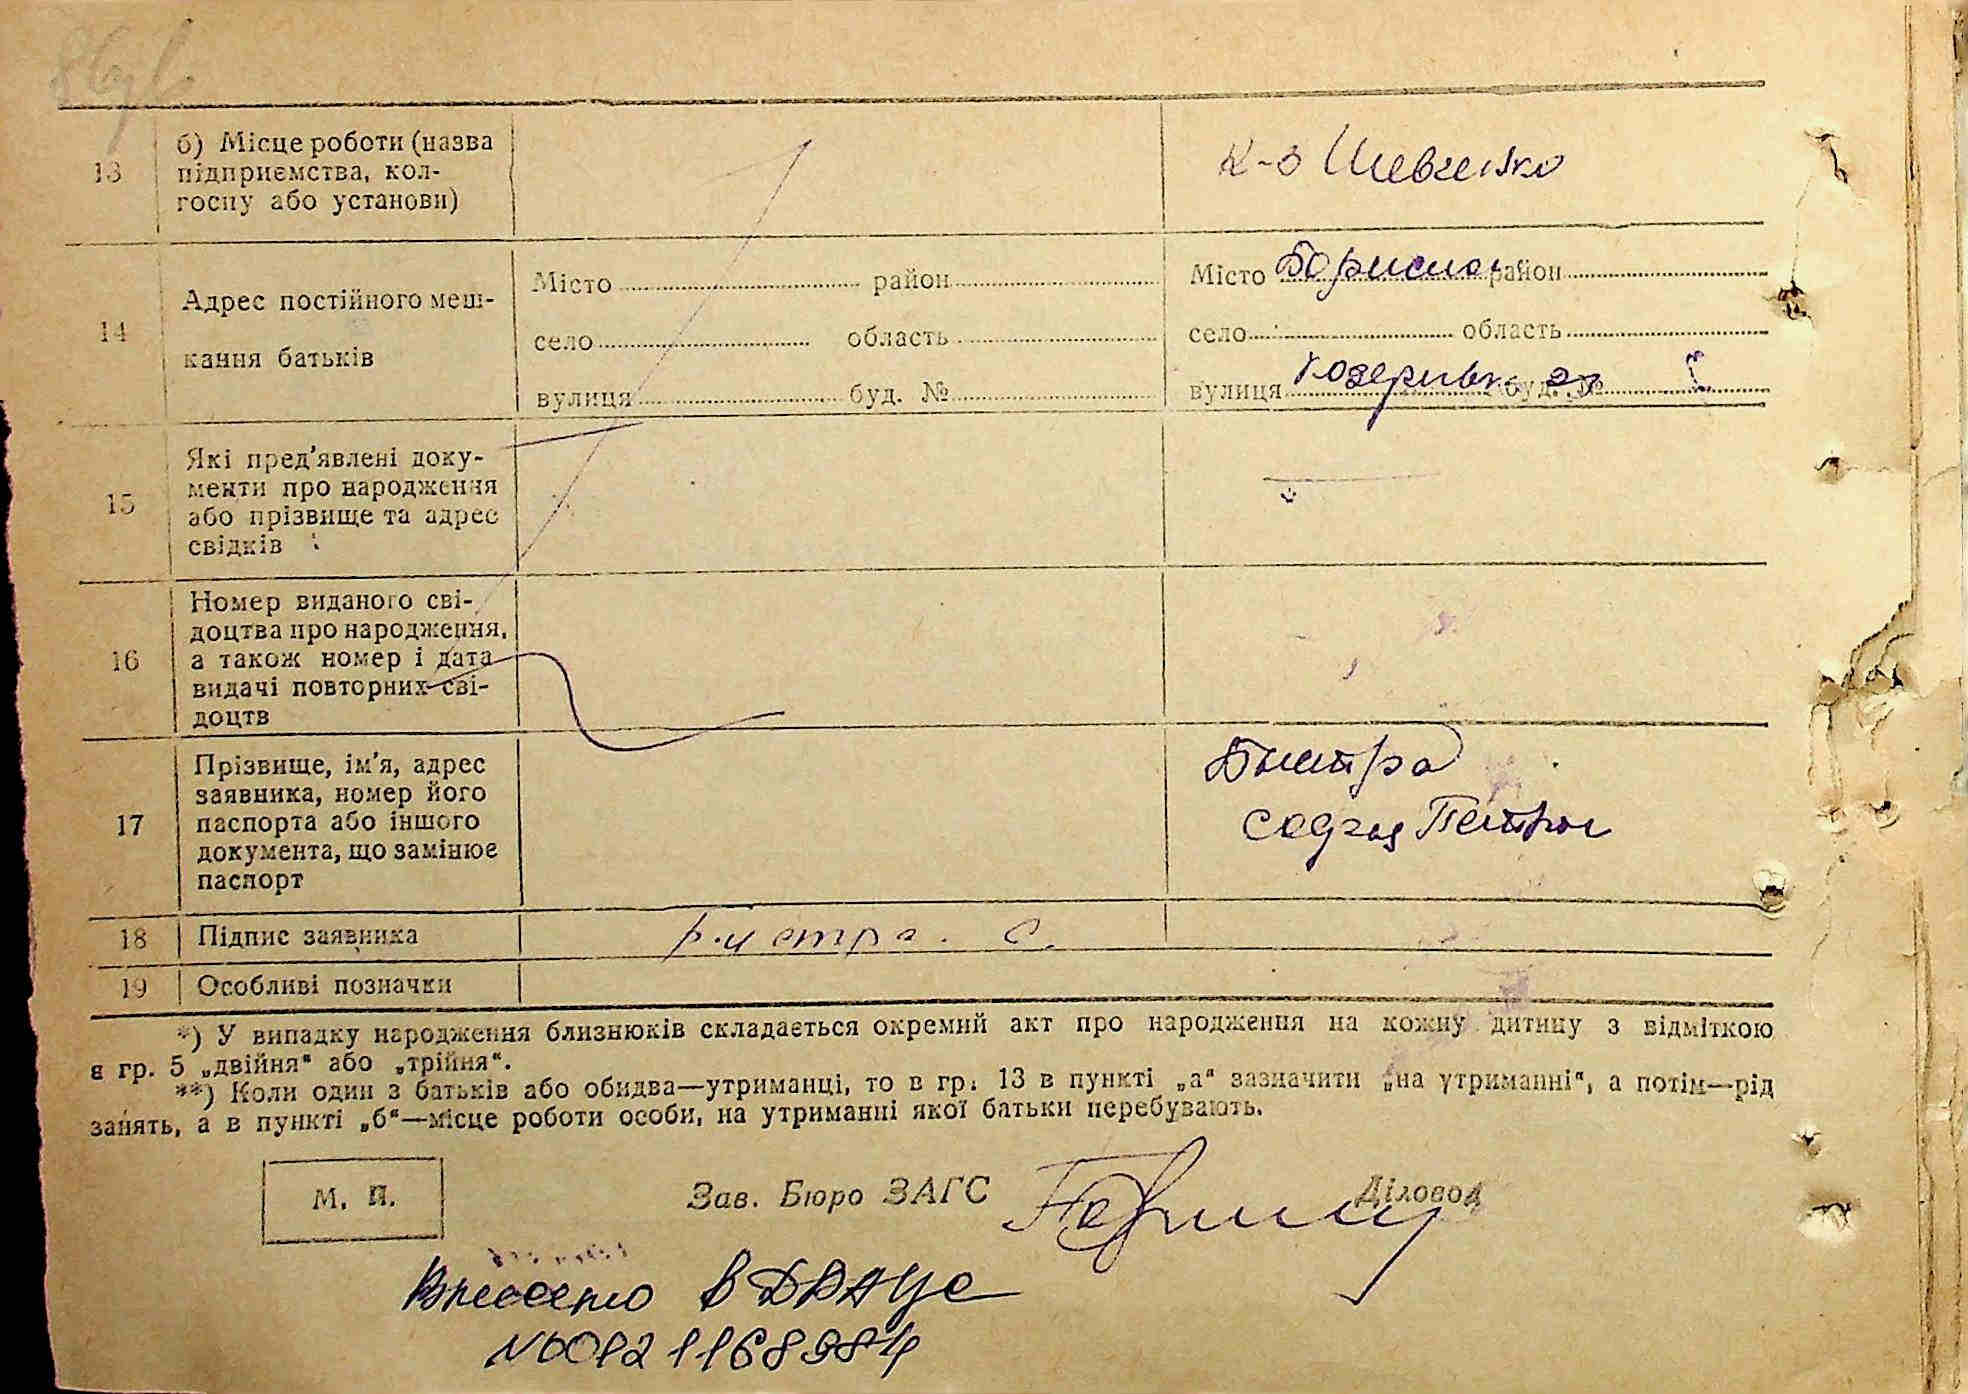 13
б) Місце роботи (назва
підприємства, кол-
госпу або установи)
к-з Шевченко
14
Адрес постійного меш-
кання батьків
Місто район
село область
вулиця буд. №
Місто Борислав район
село область
вулиця буд. №
15
Які пред'явлені доку-
менти про народження
або прізвище та адрес
свідків
16
Номер виданого сві-
доцтва про народження,
а також номер і дата
видачі повторних сві-
доцтв
17
Прізвище, ім'я, адрес
заявника, номер його
паспорта або іншого
документа, що замінює
паспорт
Быстра
Петров
18 Підпис заявника
Быстра. С.
19 Особливі позначки
*) У випадку народження близнюків складається окремий акт про народження на кожну дитину з відміткою
в гр. 5 „двійня“ або „трійня“.
**) Коли один з батьків або обидва—утриманці, то в гр. 13 в пункті „а“ зазначити „на утриманні“, а потім—рід
занять, а в пункті „б“—місце роботи особи, на утриманні якої батьки перебувають.
М. П.
Зав. Бюро ЗАГС
Діловод
Внесено в ДРАЦС
N00121168984